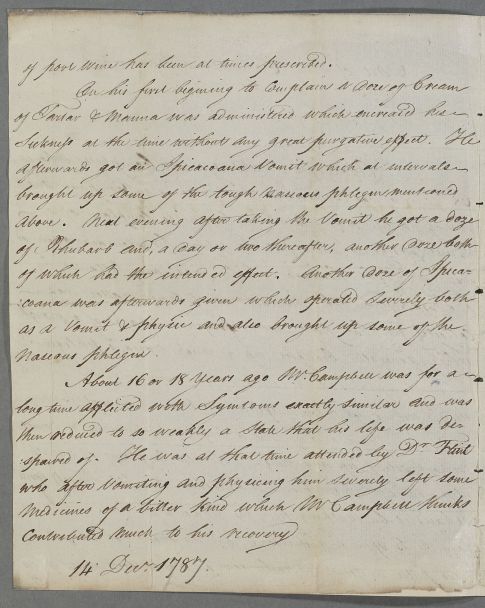 of port wine has been at times prescribed.
On his first begining to Complain a doze of Cream
of Tartar & Manna was administered which encreased his
Sickness at the time without any great purgative effect. He
afterwards got an Ipicacoana Vomit which at intervals
brought up some of the tough Naseous phlegm mentioned
above. Next evening after taking the Vomit he got a doze
of Rhubarb and, a day or two thereafter, another doze both
of which had the intended effect. Another doze of Ipica-
:coana was afterwards given which operated Severely both
as a Vomit & physic and also brought up some of the
Naseous phlegm.
About 16 or 18 Years ago Mr. Campbell was for a
long time afflicted with Symtoms exactly similar and was
then reduced to so weakly a State that his life was de-
spaired of. He was at that time attended by Dr Flint
who after Vomiting and physicing him Severely left some
Medicines of a bitter kind which Mr Campbell thinks
Contributed much to his recovery
14 Decr. 1787.